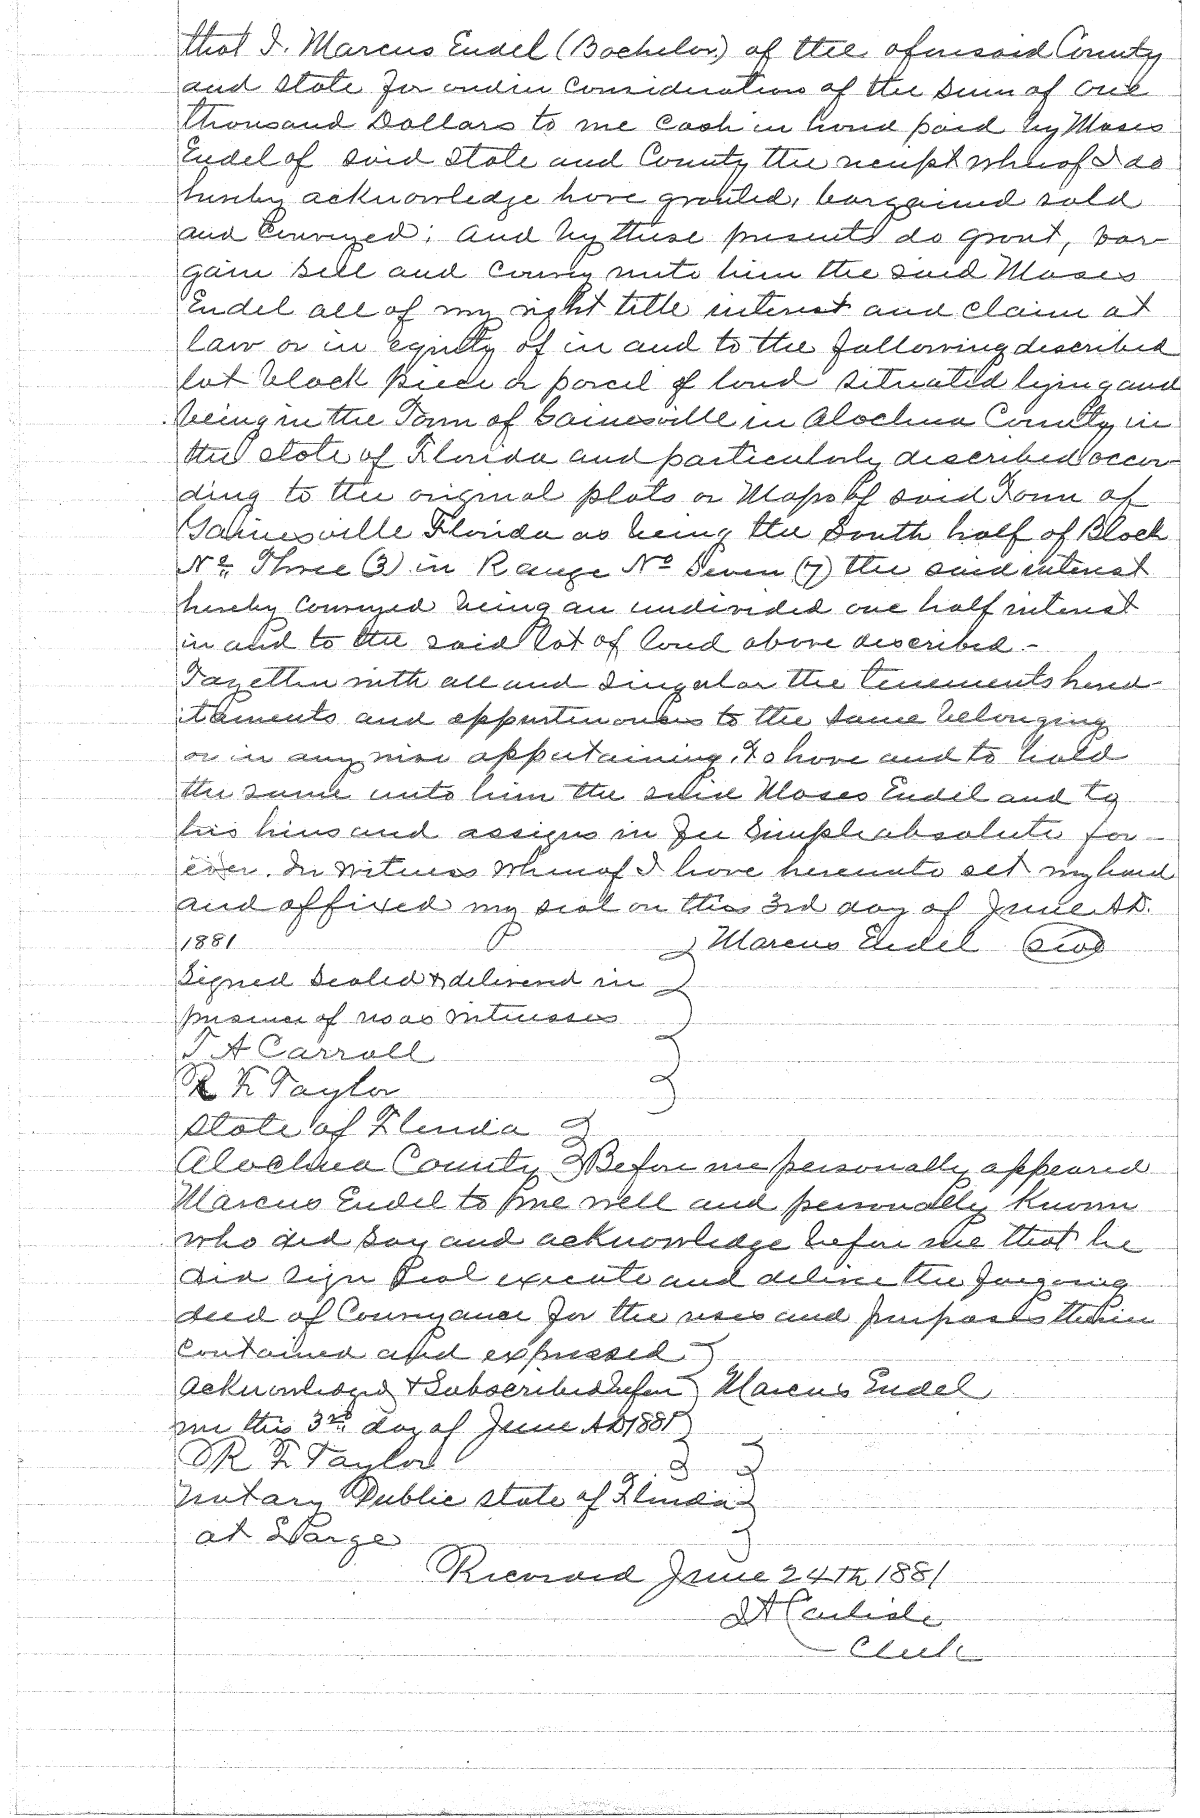 that I. Marcus Endel (Bachelor) of the aforesaid County
and state for and in consideration of the sum of one
thousand Dollars to me cash in hand paid by Moses
Endel of said state and County the receipt whereof I do
hereby acknowledge have granted, bargained sold
and Conveyed; and by these presents do grant, bar-
gain sell and convey unto him the said Moses
Endel all of my right title interest and claim at
law or in equity of in and to the following described
lot block piece or parcel of land situated lying and
being in the Town of Gainesville in Alachua County in
the state of Florida and particularly described accor-
ding to the original plats or Maps of said Town of
Gainesville Florida as being the South half of Block
No. Three (3) in Range No Seven (7) the said interest
hereby conveyed being an undivided one half interest
in and to the said lot of land above described -
Together with all and singular the tenements hered-
itaments and appurtenances to the same belonging
or in any wise appertaining, to have and to hold
the same unto him the said Moses Endel and to
his heirs and assigns in fee Simple absolute for-
ever. In witness whereof I have hereunto set my hand
and affixed my seal on this 3rd day of June A.D.
1881 Marcus Endel seal
Signed sealed & delivered in
presence of us as witnesses
T A Carroll
R F Taylor
State of Florida
Alachua County Before me personally appeared
Marcus Endel to me well and personally known
who did say and acknowledge before me that he
did sign seal execute and deliver the foregoing
deed of Conveyance for the uses and purposes therein
contained and expressed
acknowledged & Subscribed before Marcus Endel
me this 3rd day of June A D 1881
R F Taylor
Notary Public state of Florida
at Large
Recorded June 24th 1881
J A Carlisle
Clerk